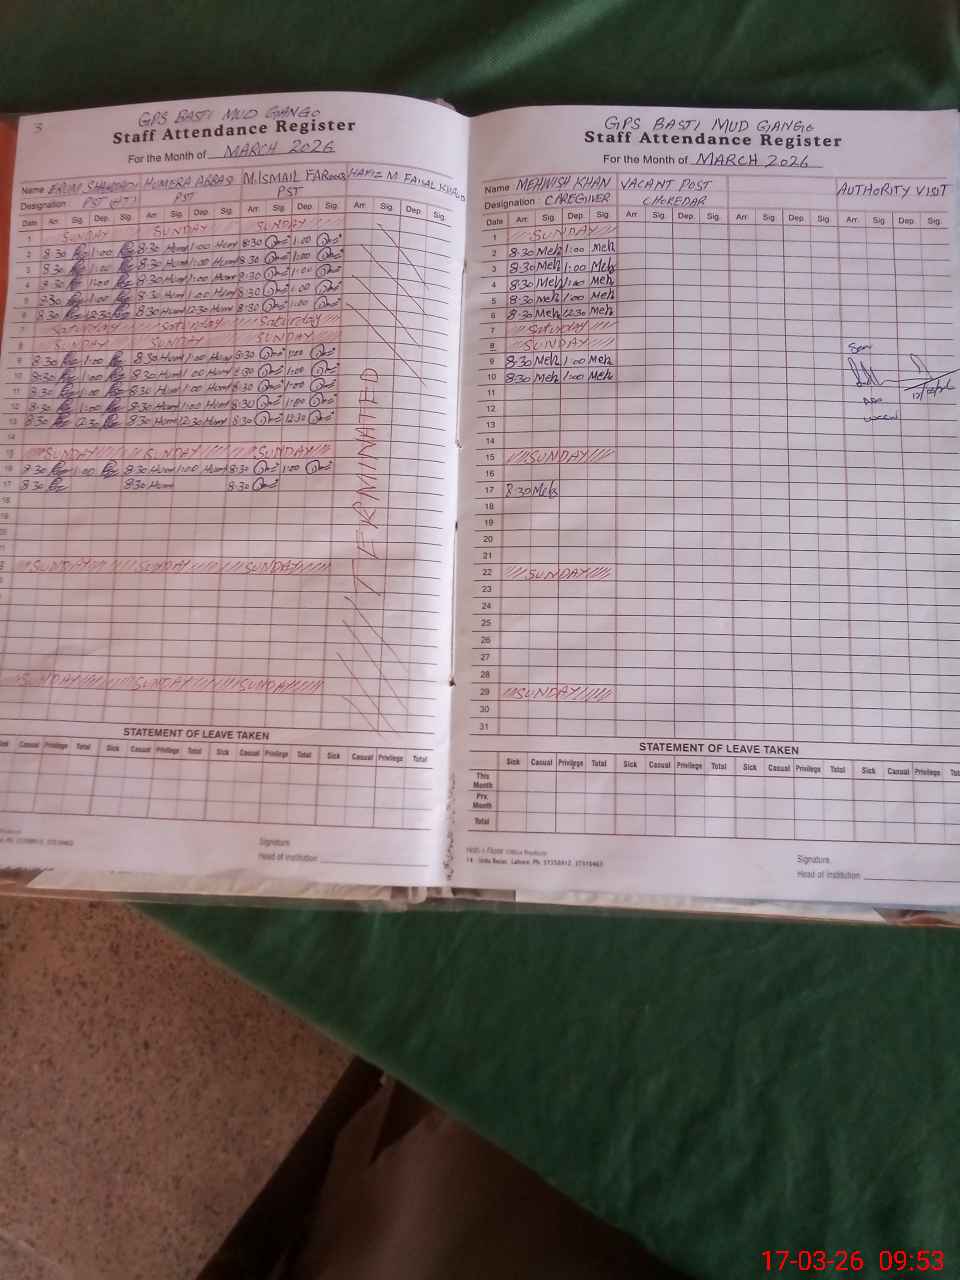 3
GPS BASTI MUD GANGO
Staff Attendance Register
For the Month of MARCH 2026
Name ERUM SHAHZADI HUMERA ABBAS M.ISMAIL FAROOQ HAFIZ M FAISAL KHALID
Designation PST (HT) PST PST
Date Arr. Sig. Dep. Sig. Arr. Sig. Dep. Sig. Arr. Sig. Dep. Sig. Arr. Sig. Dep. Sig.
1 SUNDAY SUNDAY SUNDAY
2 8:30 1:00 8:30 Hum 1:00 Hum 8:30 1:00
3 8:30 1:00 8:30 Hum 1:00 Hum 8:30 1:00
4 8:30 1:00 8:30 Hum 1:00 Hum 8:30 1:00
5 8:30 1:00 8:30 Hum 1:00 Hum 8:30 1:00
6 8:30 12:30 8:30 Hum 12:30 Hum 8:30
7 Saturday Saturday Saturday
8 SUNDAY SUNDAY SUNDAY
9 8:30 1:00 8:30 Hum 1:00 Hum 8:30 1:00
10 8:30 1:00 8:30 Hum 1:00 Hum 8:30 1:00
11 8:30 1:00 8:30 Hum 1:00 Hum 8:30 1:00
12 8:30 1:00 8:30 Hum 1:00 Hum 8:30 1:00
13 8:30 12:30 8:30 Hum 12:30 Hum 8:30 12:30
14
15 SUNDAY SUNDAY SUNDAY
16 8:30 1:00 8:30 Hum 1:00 Hum 8:30 1:00
17 8:30 8:30 Hum 8:30
18
19
SUNDAY SUNDAY SUNDAY
SUNDAY SUNDAY SUNDAY
TERMINATED
STATEMENT OF LEAVE TAKEN
Casual Privilege Total Sick Casual Privilege Total Sick Casual Privilege Total Sick Casual Privilege Total
Signature
Head of Institution
GPS BASTI MUD GANGO
Staff Attendance Register
For the Month of MARCH 2026
Name MEHWISH KHAN VACANT POST AUTHORITY VISIT
Designation : CAREGIVER CHOKEDAR
Date Arr. Sig. Dep. Sig. Arr. Sig. Dep. Sig. Arr. Sig. Dep. Sig. Arr. Sig. Dep. Sig.
1 SUNDAY
2 8:30 Meh 1:00 Meh
3 8:30 Meh 1:00 Meh
4 8:30 Meh 1:00 Meh
5 8:30 Meh 1:00 Meh
6 8:30 Meh 12:30 Meh
7 Saturday
8 SUNDAY
9 8:30 Meh 1:00 Meh
10 8:30 Meh 1:00 Meh
11
12
13
14
15 SUNDAY
16
17 8:30 Meh
18
19
20
21
22 SUNDAY
23
24
25
26
27
28
29 SUNDAY
30
31
STATEMENT OF LEAVE TAKEN
Sick Casual Privilege Total Sick Casual Privilege Total Sick Casual Privilege Total Sick Casual Privilege Total
This Month
Prv. Month
Total
14 Urdu Bazar, Lahore.
Signature
Head of Institution
17-03-26 09:53